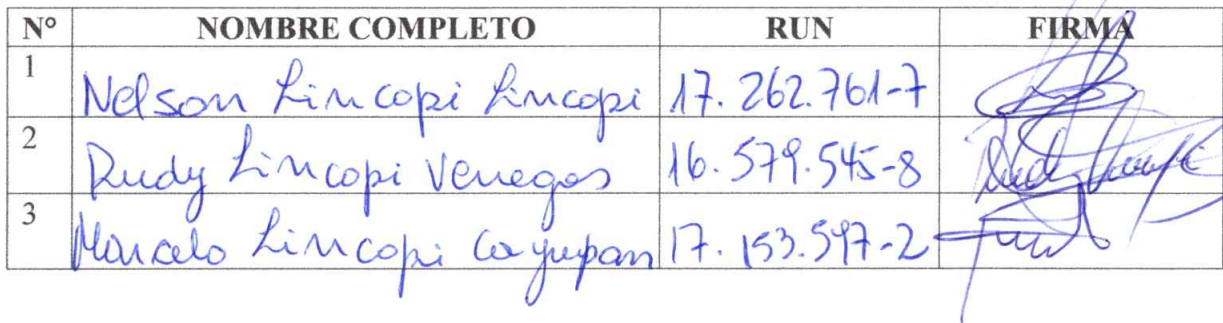 N° NOMBRE COMPLETO RUN FIRMA
1 Nelson Lincopi Lincopi 17.262.761-7
2 Rudy Lincopi Venegas 16.579.545-8
3 Marcelo Lincopi Cayupan 17.153.597-2